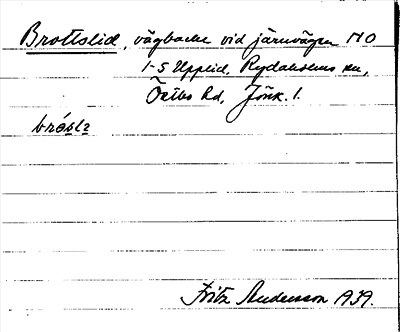 Brottslid, vägbacke vid järnvägen NO
1-5 Upplid, Rydaholms sn,
Östbo hd, Jönk. l.
brósls
Fritz Andersson 1939.